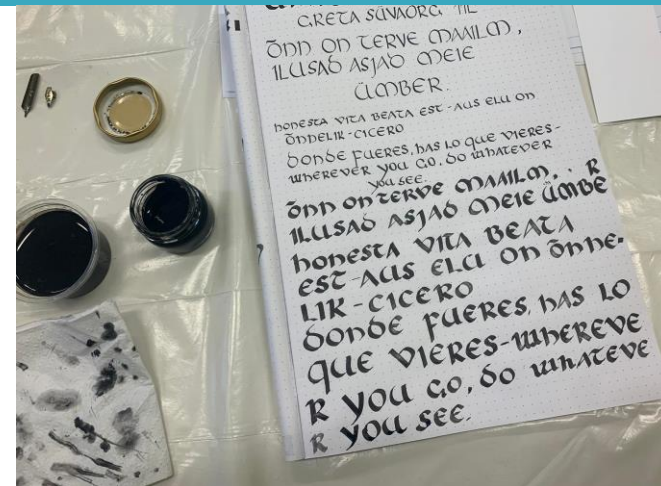 GRETA SÜVAORG
ÕNN ON TERVE MAAILM,
ILUSAD ASJAD MEIE
ÜMBER.
HONESTA VITA BEATA EST - AUS ELU ON
ÕNNELIK - CICERO
DONDE FUERES, HAS LO QUE VIERES -
WHEREVER YOU GO, DO WHATEVER
YOU SEE.
ÕNN ON TERVE MAAILM, . R
ILUSAD ASJAD MEIE ÜMBE
HONESTA VITA BEATA
EST - AUS ELU ON ÕNNE-
LIK - CICERO
DONDE FUERES, HAS LO
QUE VIERES - WHEREVE
R YOU GO, DO WHATEVE
R YOU SEE.